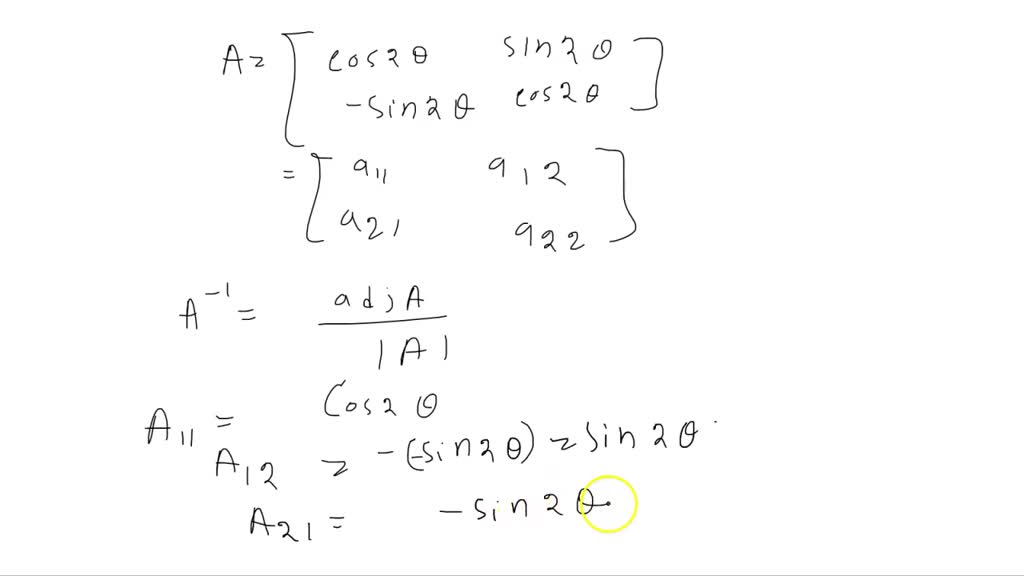 A = [ cos2θ sin2θ ]
-sin2θ cos2θ
= [ a11 a12 ]
a21 a22
A^-1 = adj A
|A|
A11 = cos2θ
A12 = -(-sin2θ) = sin2θ
A21 = -sin2θ